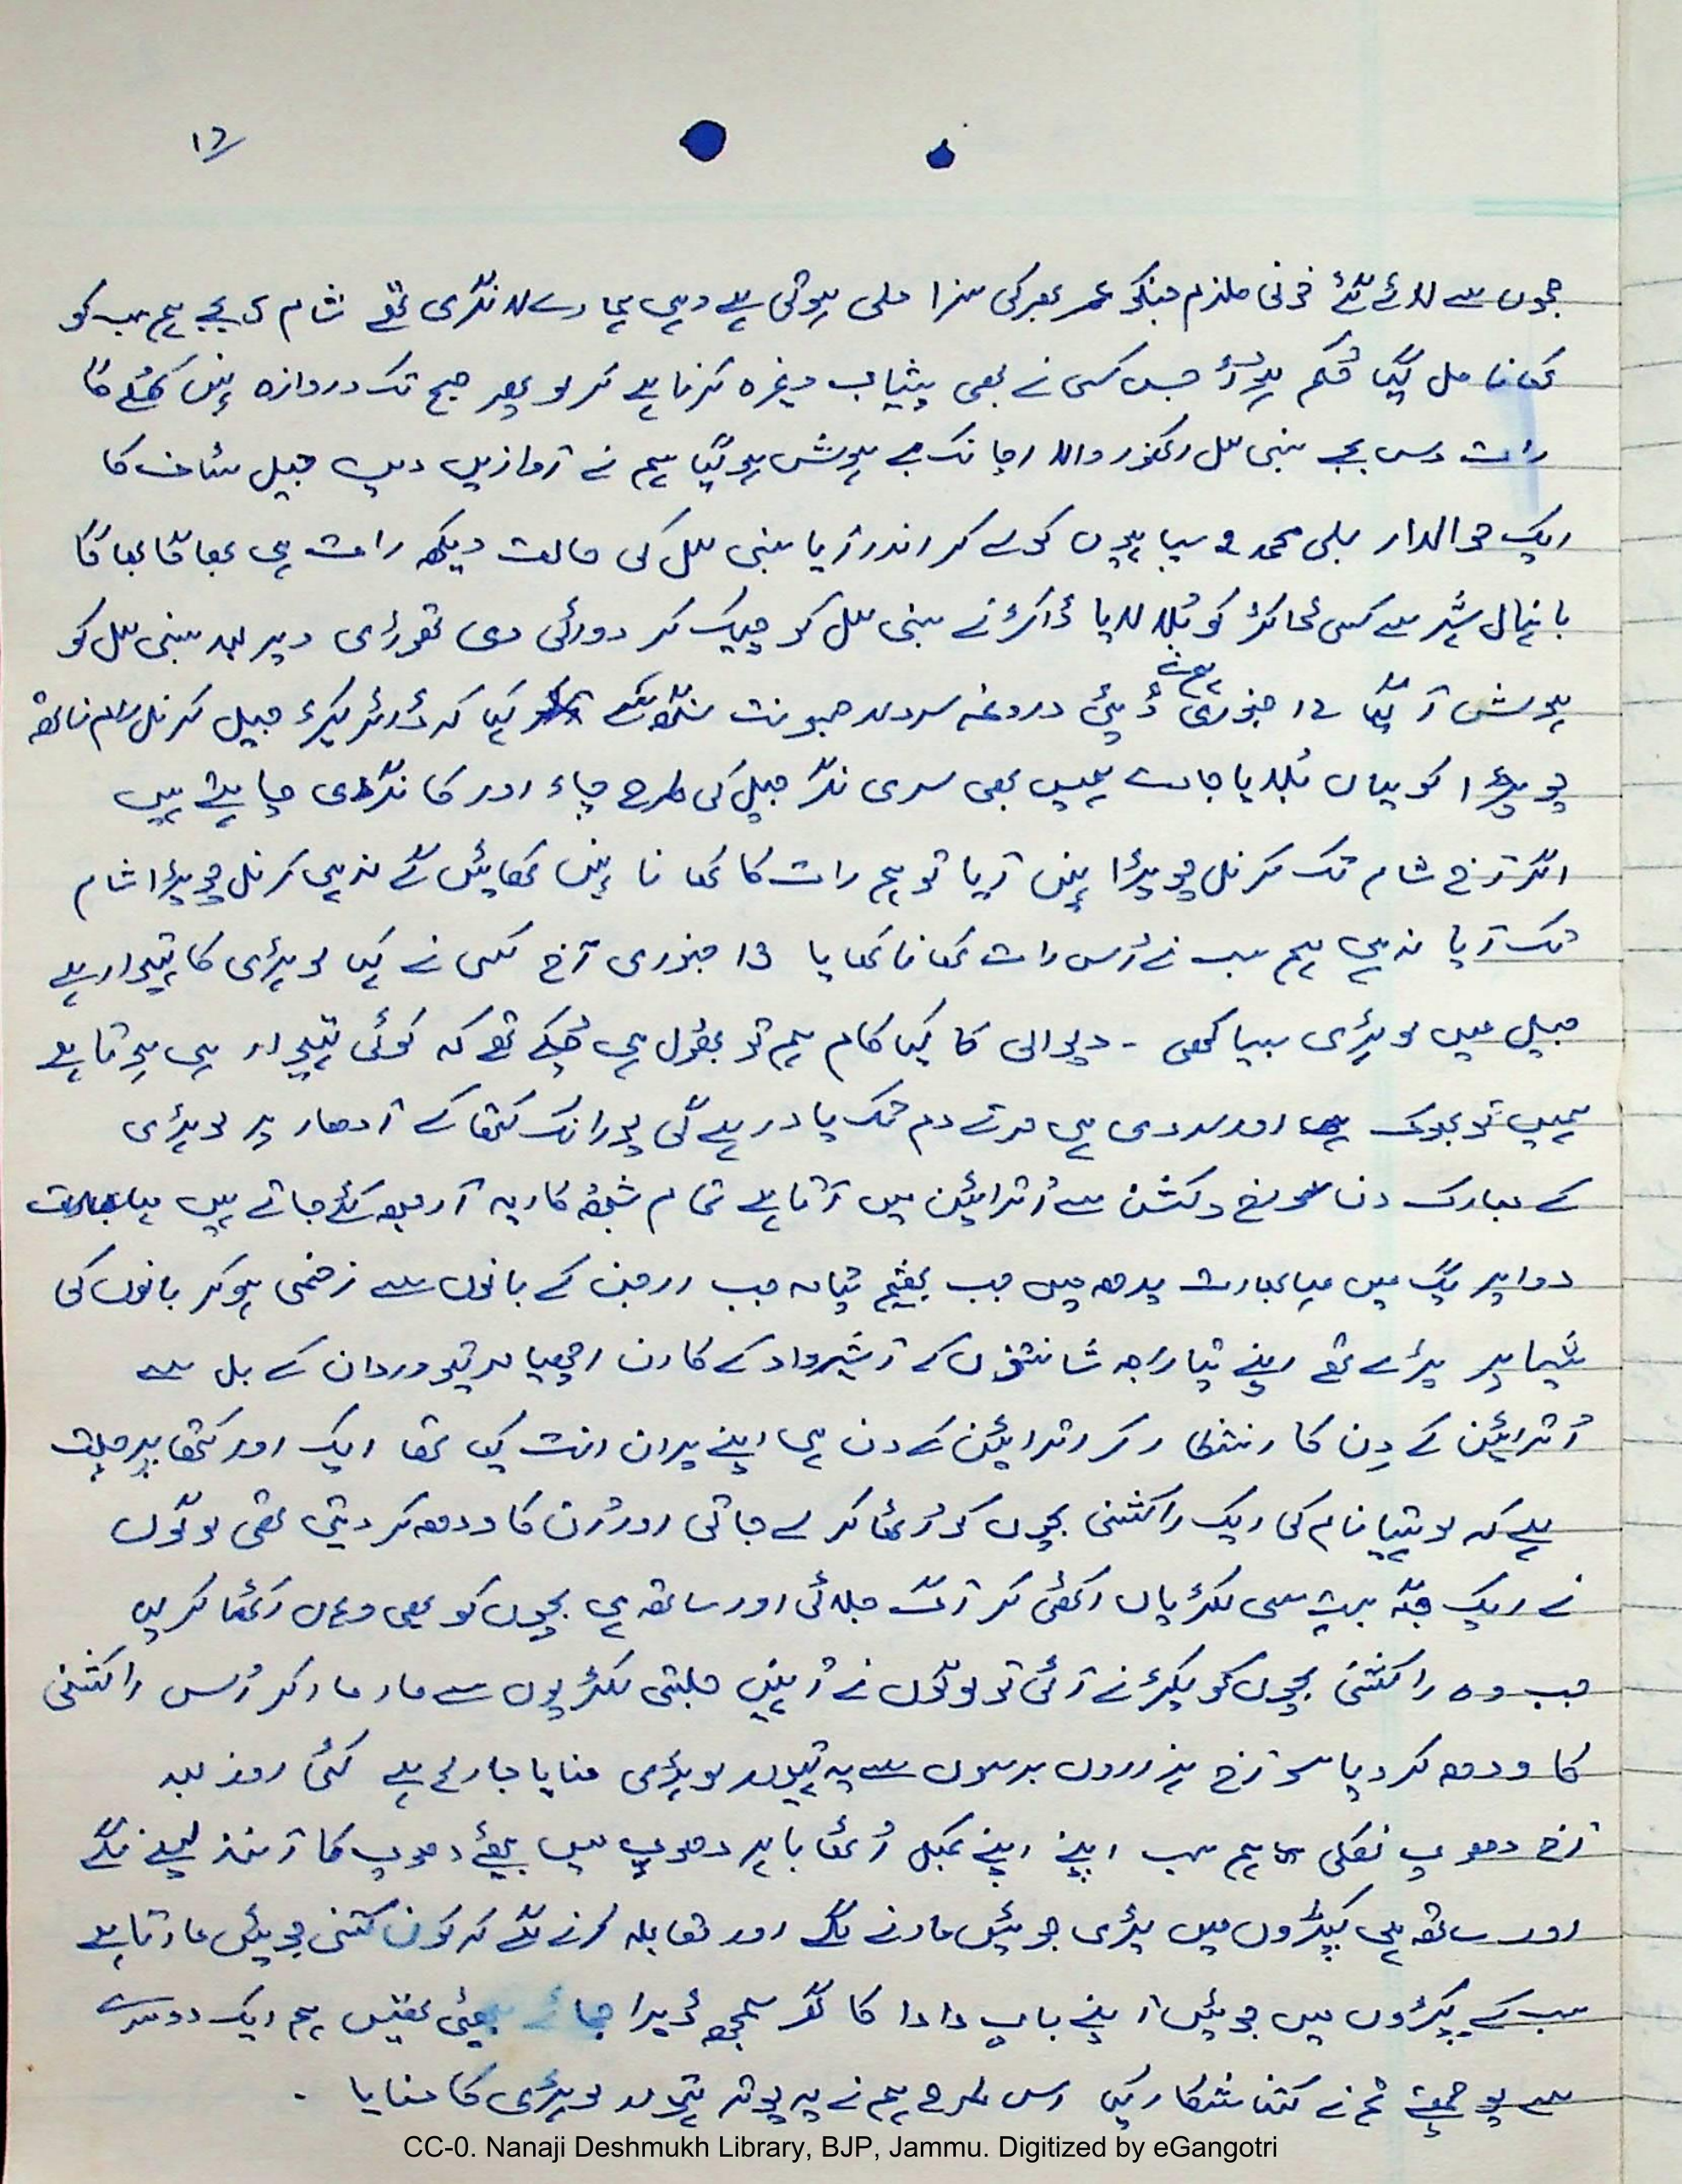 17
جموں سے لائے گئے خونی ملزم جنکو عمر بھر کی سزا ملی ہوئی ہے وہی ہمارے لانگری تھے شام 5 بجے ہم سب کو
کھانا مل گیا حُکم ہوا جس کسی نے بھی پیشاب وغیرہ کرنا ہے کر لو پھر صبح تک دروازہ نہیں کھُلے گا
رات دس بجے بنسی لال والا اچانک بے ہوش ہو گیا ہم نے آوازیں دیں جیل سٹاف کا
ایک حوالدار علی محمد 2 سپاہیوں کو لے کر اندر آیا بنسی لال کی حالت دیکھ رات ہی بھاگا بھاگا
بانہال شہر سے کسی ڈاکٹر کو بُلا لایا ڈاکٹر نے بنسی لال کو چیک کر دوائی دی تھوڑی دیر بعد بنسی لال کو
ہوش آ گیا 12 جنوری ہم نے ڈپٹی دروغہ سردار جسونت سنگھ سے کہا کہ ڈائریکٹر جیل کرنل رام ناتھ
چوپڑا کو یہاں بُلایا جائے ہمیں بھی سری نگر جیل کی طرح چاء اور کانگڑی چاہیئے ہیں
اگر آج شام تک کرنل چوپڑا نہیں آیا تو ہم رات کا کھانا نہیں کھائیں گے نہ ہی کرنل چوپڑا شام
تک آیا نہ ہی ہم سب نے اُس رات کھانا کھایا 13 جنوری آج کسی نے کہا لوہڑی کا تیوہار ہے
جیل میں لوہڑی بیساکھی - دیوالی کا کیا کام ہم تو بھول ہی چُکے تھے کہ کوئی تیوہار بھی ہوتا ہے
ہمیں تو بھوک اور سردی ہی مرتے دم تک یاد رہے گی پورانک کتھا کے آدھار پر لوہڑی
کے مبارک دن سورج دکشن سے اُترائین میں آتا ہے تمام شُبھ کاریہ آرمبھ کئے جاتے ہیں مہابھارت
دواپر یُگ میں مہابھارت یدھ میں جب بھیشم پتامہ جب ارجن کے بانوں سے زخمی ہو کر بانوں کی
شیا پر پڑے تھے اپنے پتا راجہ شانتنوں کے آشیرواد کے کارن اچھیا مرتیو وردان کے بل سے
اُترائین کے دِن کا انتظار کر اترائین کے دن ہی اپنے پران انت کیا تھا ایک اور کتھا پرچلت
ہے کہ لوہتیا نام کی ایک راکشنی بچوں کو اُٹھا کر لے جاتی اور اُن کا ودھ کر دیتی تھی لوگوں
نے ایک جگہ بہت سی لکڑیاں اکٹھی کر آگ جلائی اور ساتھ ہی بچوں کو بھی وہاں اکٹھا کر لیا
جب وہ راکشنی بچوں کو پکڑنے آئی تو لوگوں نے اُنہیں جلتی لکڑیوں سے مار مار کر اُس راکشنی
کا ودھ کر دیا سو آج ہزاروں برسوں سے یہ تیوہار لوہڑی منایا جا رہا ہے کئی روز بعد
آج دھوپ نکلی ہم سب اپنے اپنے کمبل اُٹھا باہر دھوپ میں بیٹھے دھوپ کا آنند لینے لگے
اور ساتھ ہی کپڑوں میں پڑی جوئیں مارنے لگے اور مقابلہ کرنے لگے کہ کون کتنی جوئیں مارتا ہے
سب کے کپڑوں میں جوئیں اپنے باپ دادا کا گھر سمجھ ڈیرا جمائے بیٹھی تھیں ہم ایک دوسرے
سے پوچھتے تم نے کتنا شکار کیا اس طرح ہم نے یہ پوتر تیوہار لوہڑی کا منایا -
CC-0. Nanaji Deshmukh Library, BJP, Jammu. Digitized by eGangotri